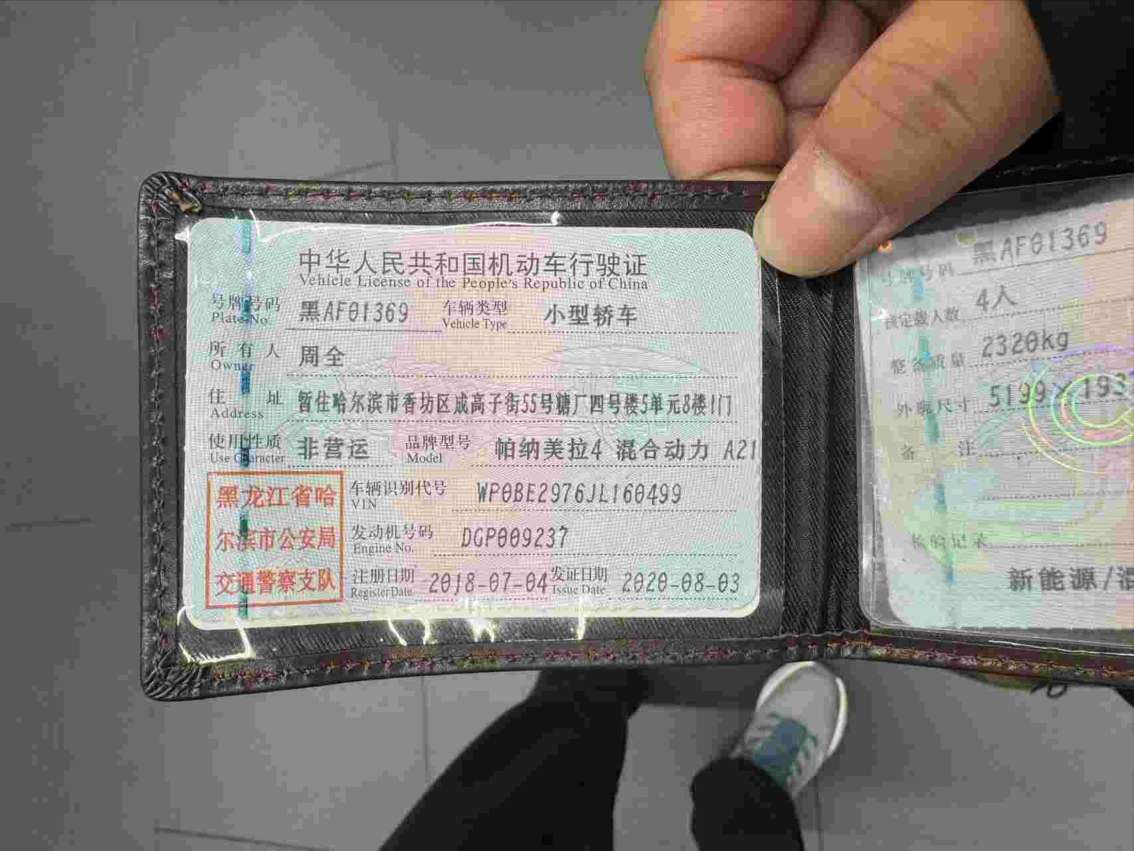 中华人民共和国机动车行驶证
Vehicle License of the People's Republic of China
号牌号码 黑AF01369 车辆类型 小型轿车
Plate No. Vehicle Type
所有人 周全
Owner
住址 暂住哈尔滨市香坊区成高子街55号糖厂四号楼5单元8楼1门
Address
使用性质 非营运 品牌型号 帕纳美拉4 混合动力 A21
Use Character Model
黑龙江省哈
尔滨市公安局
交通警察支队
车辆识别代号 WP0BE2976JL160499
VIN
发动机号码 DGP009237
Engine No.
注册日期 2018-07-04 发证日期 2020-08-03
Register Date Issue Date
号牌号码 黑AF01369
核定载人数 4人
整备质量 2320kg
外廓尺寸 5199×1937
备注
检验记录
新能源/混